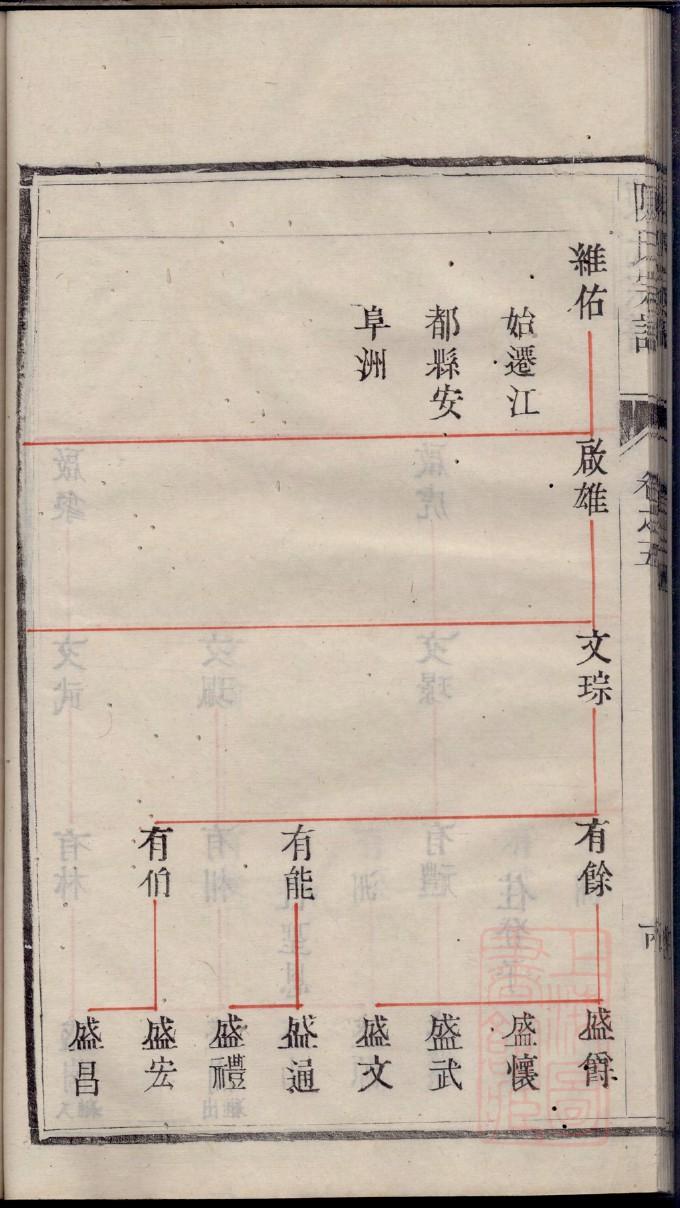 陳氏宗譜
卷之五
維佑
始遷江
都縣安
阜洲
啟雄
文琮
有餘
有能
有伯
盛爵
盛懷
盛武
盛文
盛通
盛禮
盛宏
盛昌